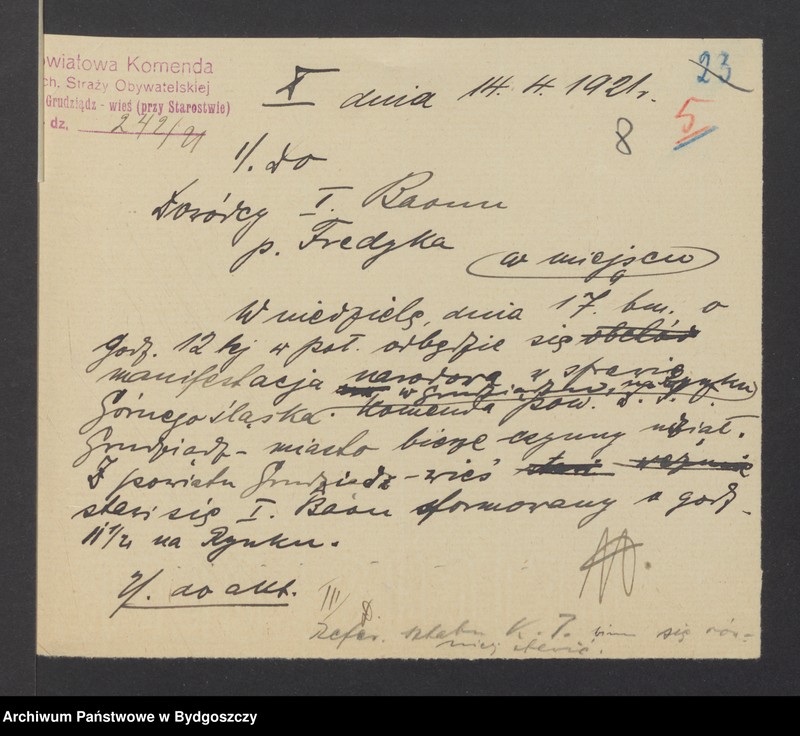 wiatowa Komenda
ch. Straży Obywatelskiej
Grudziądz - wieś (przy Starostwie)
dz. 242/21
X dnia 14. 4. 1921 r.
23
5
8
1/. Do
Dowódcy I. Baonu
p. Fredyka
w miejscu
W niedzielę, dnia 17. bm. o
godz. 12 tej w poł. odbędzie się obchód
manifestacja narodowa w sprawie
w Grudziądzu, na Rynku
Górnego śląska. Komenda pow. S. O.
Grudziądz - miasto bierze czynny udział.
Z powiatu Grudziądz - wieś
stawi się I. Baon sformowany o godz.
11 1/2 na Rynku.
2/. do akt.
III
Refer. sztabu K. P. winien się rów-
nież stawić.
Archiwum Państwowe w Bydgoszczy